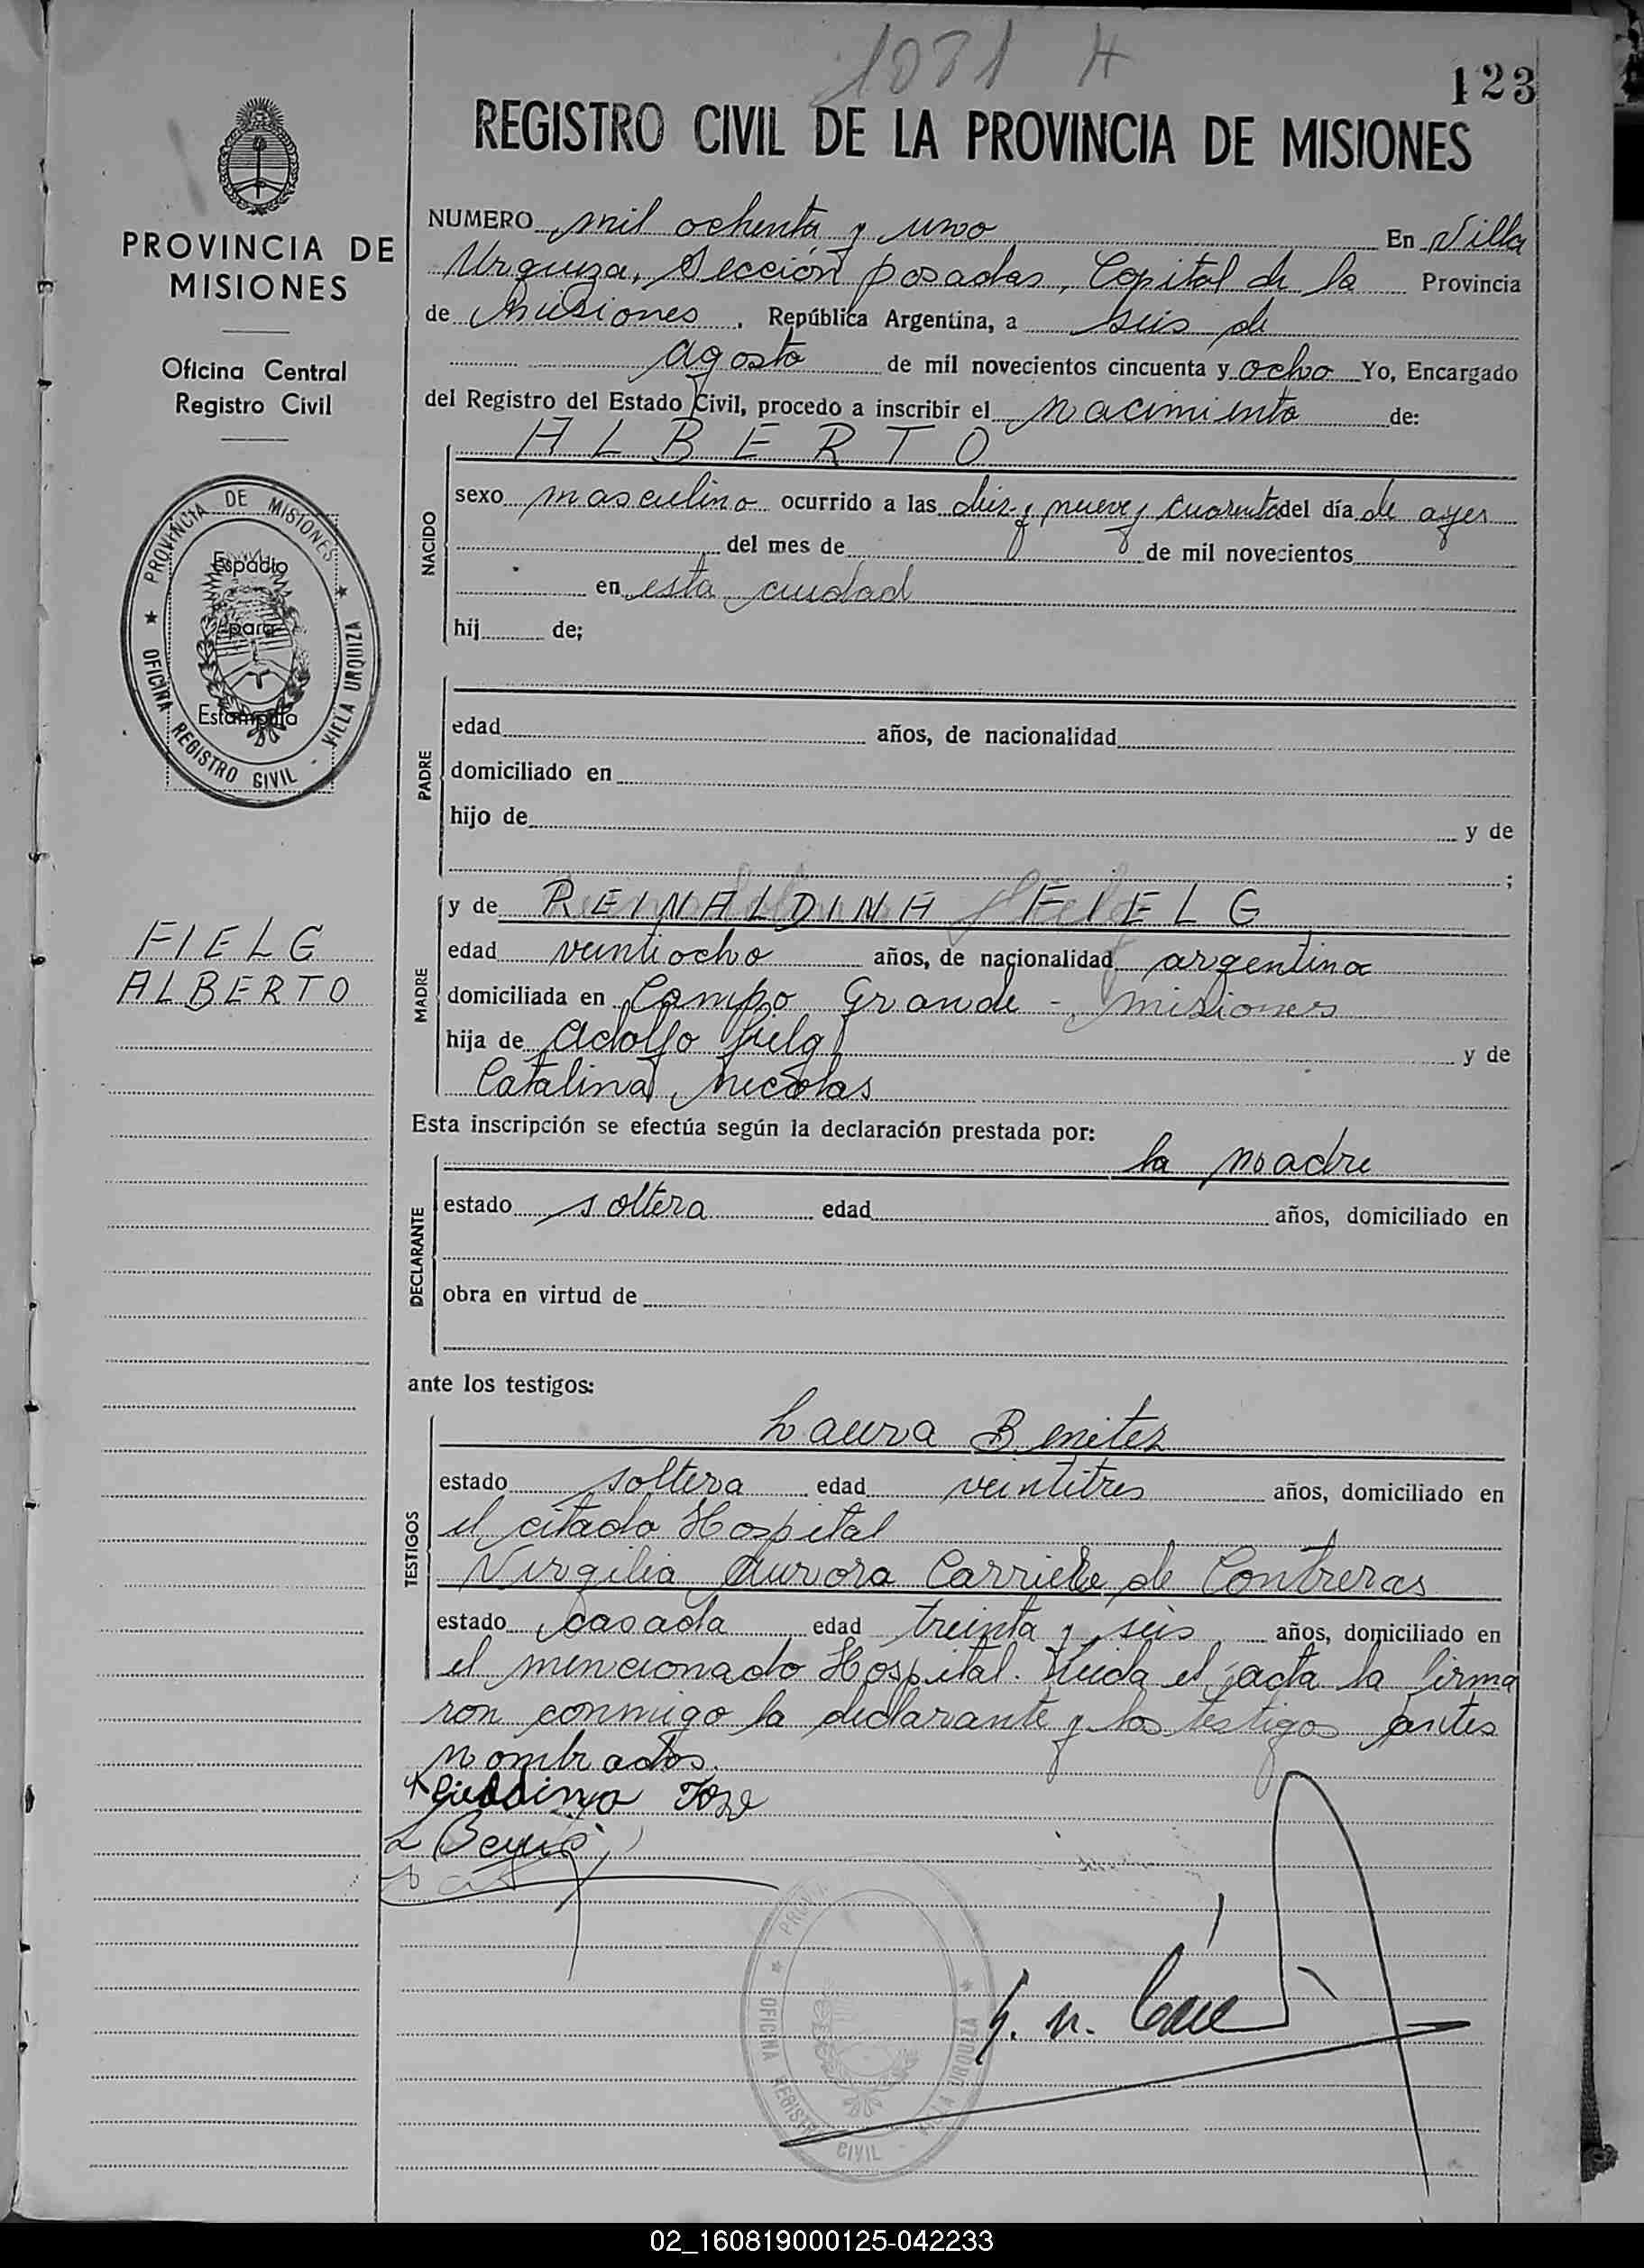 1081 H
123
REGISTRO CIVIL DE LA PROVINCIA DE MISIONES
PROVINCIA DE
MISIONES
Oficina Central
Registro Civil
PROVINCIA DE MISIONES
OFICINA REGISTRO CIVIL - VILLA URQUIZA
Espacio
para
Estampilla
FIELG
ALBERTO
NUMERO mil ochenta y uno En Villa
Urquiza, Sección Posadas, Capital de la Provincia
de Misiones, República Argentina, a seis de
agosto de mil novecientos cincuenta y ocho Yo, Encargado
del Registro del Estado Civil, procedo a inscribir el nacimiento de:
NACIDO
ALBERTO
sexo masculino ocurrido a las diez y nueve y cuarenta del día de ayer
del mes de de mil novecientos
en esta ciudad
hij de;
PADRE
edad años, de nacionalidad
domiciliado en
hijo de y de
;
MADRE
y de REINALDINA FIELG
edad veintiocho años, de nacionalidad argentina
domiciliada en Campo Grande - Misiones
hija de Adolfo Fielg y de
Catalina Nicolas
Esta inscripción se efectúa según la declaración prestada por:
DECLARANTE
la madre
estado soltera edad años, domiciliado en
obra en virtud de
ante los testigos:
TESTIGOS
Laura Benitez
estado soltera edad veintitres años, domiciliado en
el citado Hospital
Virgilia Aurora de Contreras
estado casada edad treinta y seis años, domiciliado en
el mencionado Hospital. Leida el acta la firma
ron conmigo la declarante y los testigos antes
nombrados.
OFICINA REGISTRO CIVIL
02_160819000125-042233